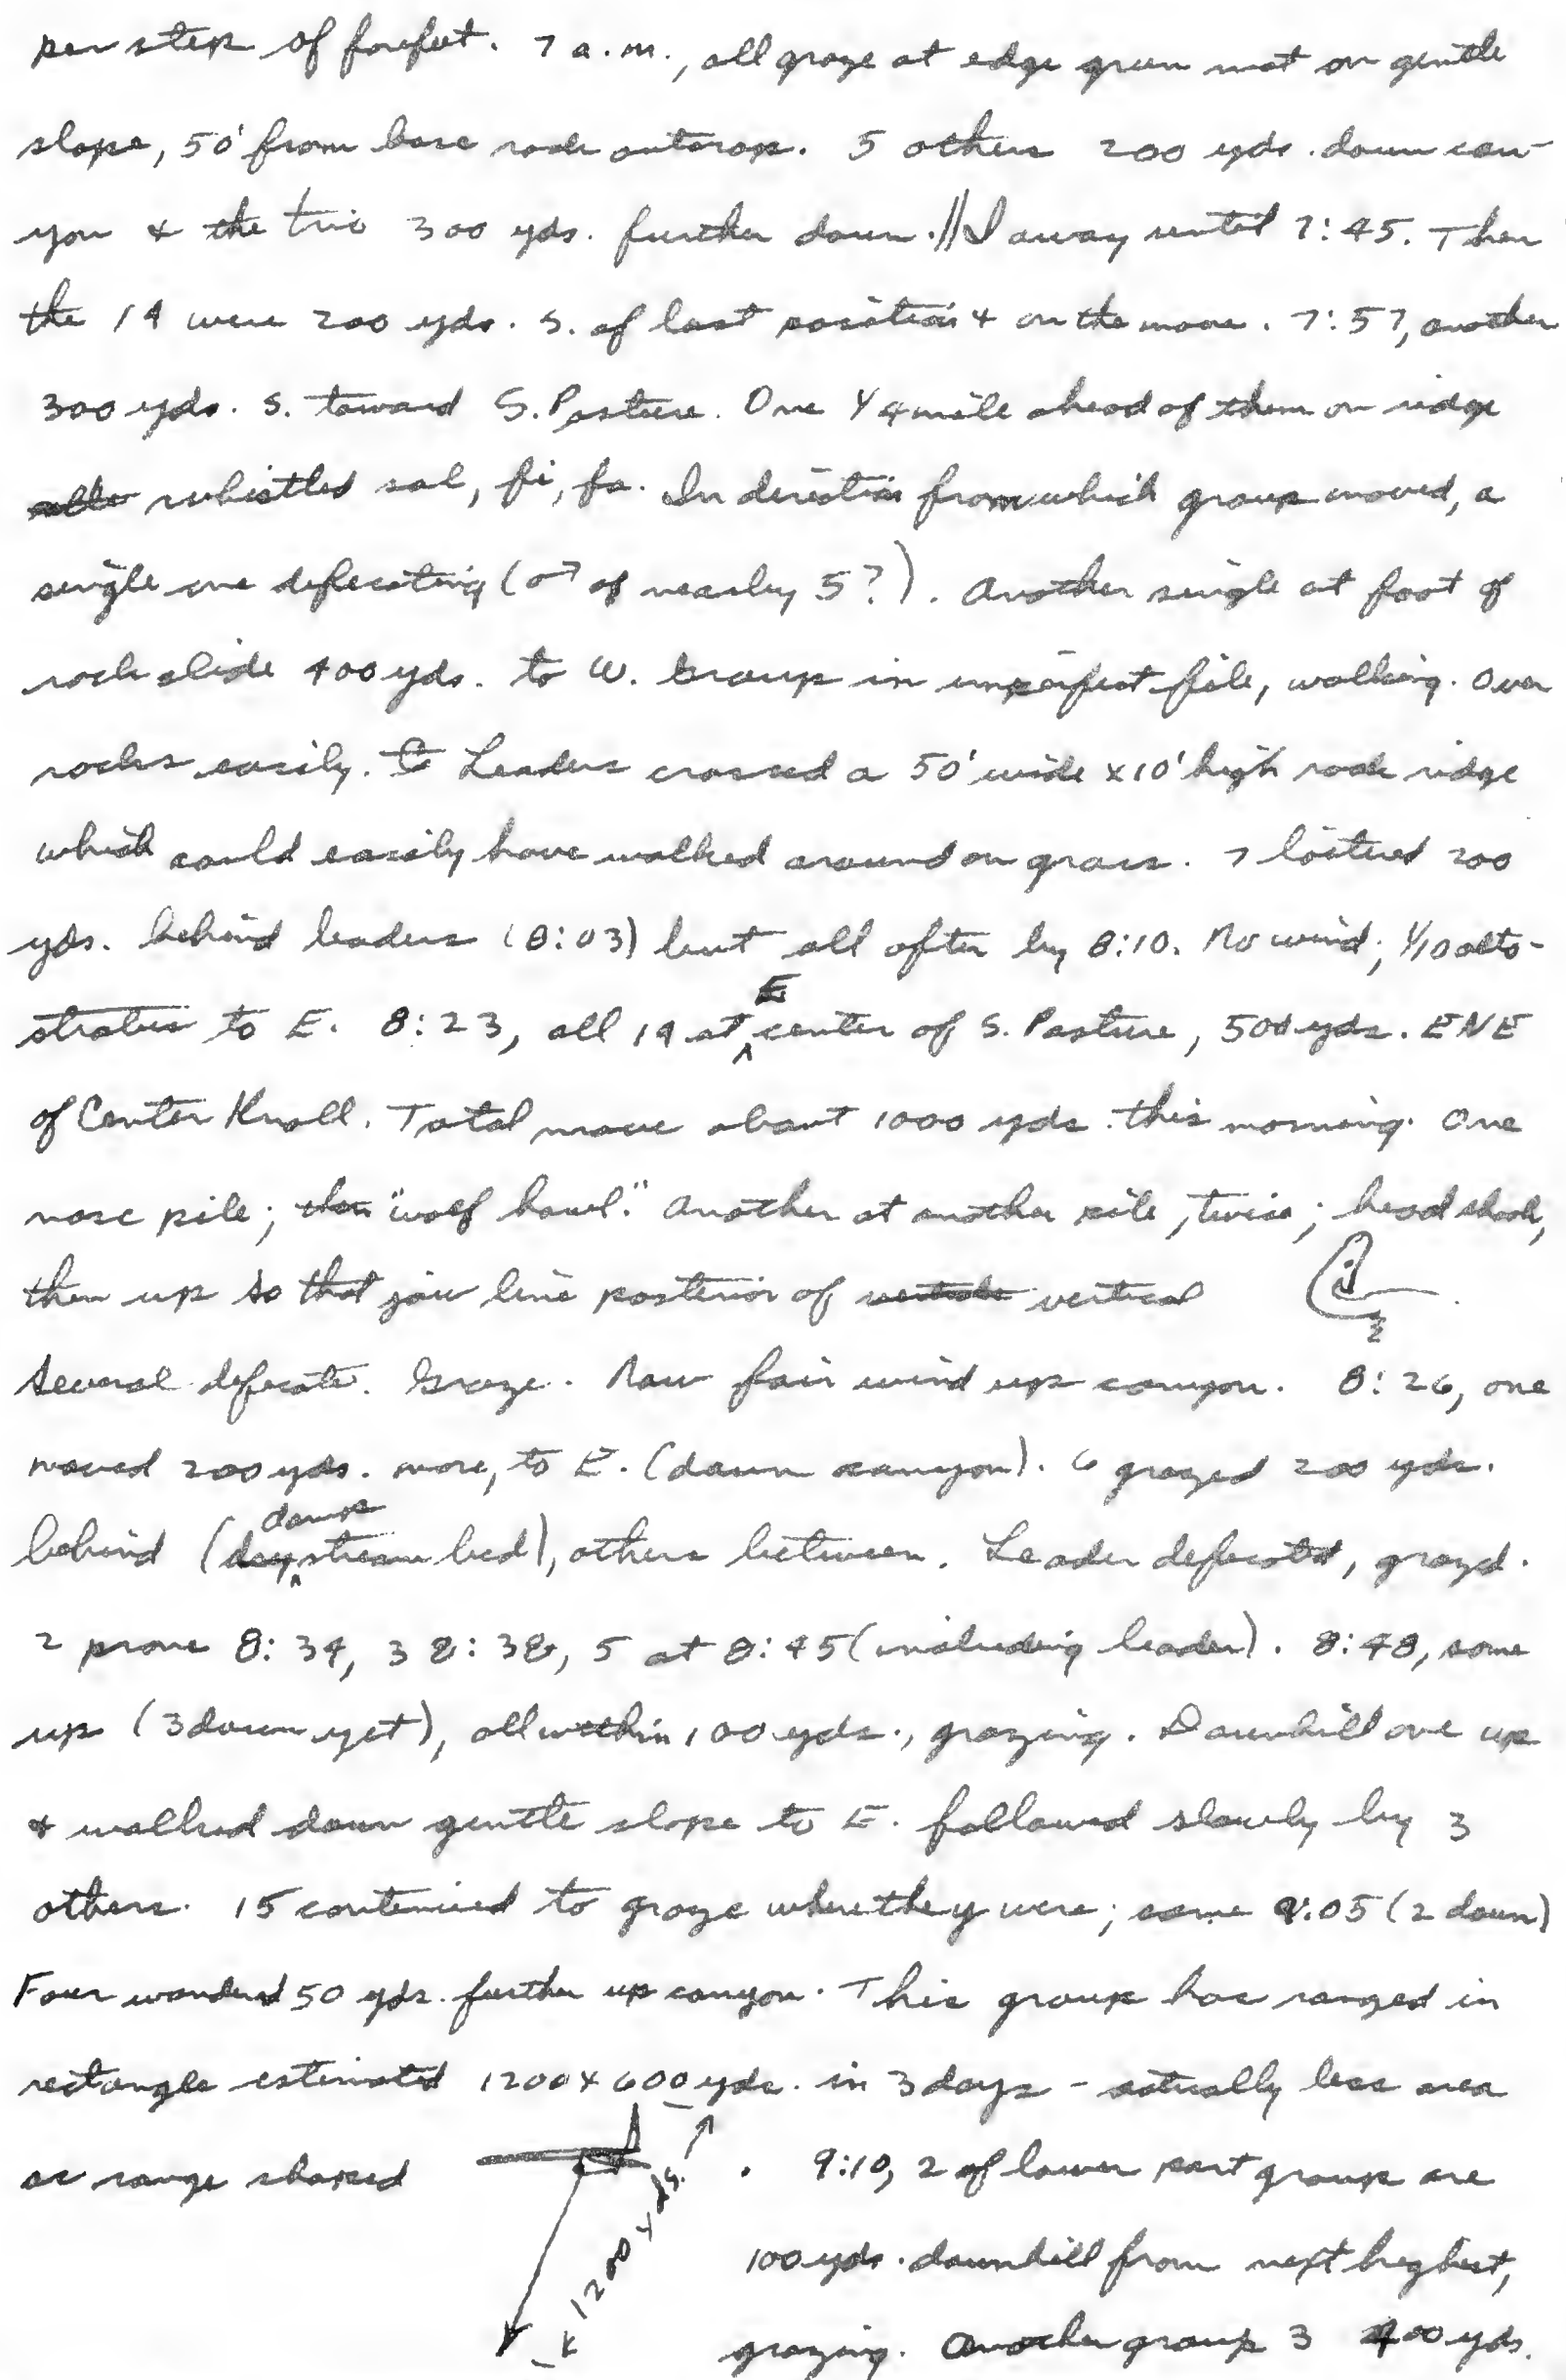 per step of forefeet. 7 a.m., all graze at edge green mat on gentle
slope, 50' from base rock outcrop. 5 others 200 yds. down can-
yon & the trio 300 yds. further down. // I away until 7:45. Then
the 19 were 200 yds. S. of last position & on the move. 7:57, another
300 yds. S. toward S. Pasture. One 1/4 mile ahead of them on ridge
whistled sol, fi, fa. In direction from which group moved, a
single one defecating (♂ of nearby 5?). Another single at foot of
rock slide 400 yds. to W. Group in imperfect file, walking. Over
rocks easily. Leaders crossed a 50' wide x 10' high rock ridge
which could easily have walked around on grass. 7 loitered 200
yds. behind leaders (8:03) but all after by 8:10. No wind; 1/10 alto-
stratus to E. 8:23, all 19 at E center of S. Pasture, 500 yds. ENE
of Center Knoll. Total move about 1000 yds. this morning. One
nose pile; "wolf howl." Another at another pile, twice; head shook,
then up so that jaw line posterior of vertical
Several defecate. Graze. Now fair wind up canyon. 8:26, one
moved 200 yds. more, to E. (down canyon). 6 grazed 200 yds.
behind (damp stream bed), others between. Leader defecated, grazed.
2 prone 8:34, 3 8:38, 5 at 8:45 (including leader). 8:48, some
up (3 down yet), all within 100 yds., grazing. Downhill one up
& walked down gentle slope to E. followed slowly by 3
others. 15 continued to graze where they were; same 9:05 (2 down)
Four wandered 50 yds. further up canyon. This group has ranged in
rectangle estimated 1200 x 600 yds. in 3 days - actually less area
as range shaped 1200 yds. . 9:10, 2 of lower part group are
100 yds. downhill from next highest,
grazing. Another group 3 400 yds.